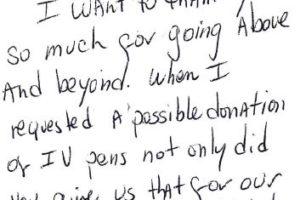 I want to thank
So much for going Above
And beyond. When I
requested A possible donation
of IV pens not only did
you give us that for our